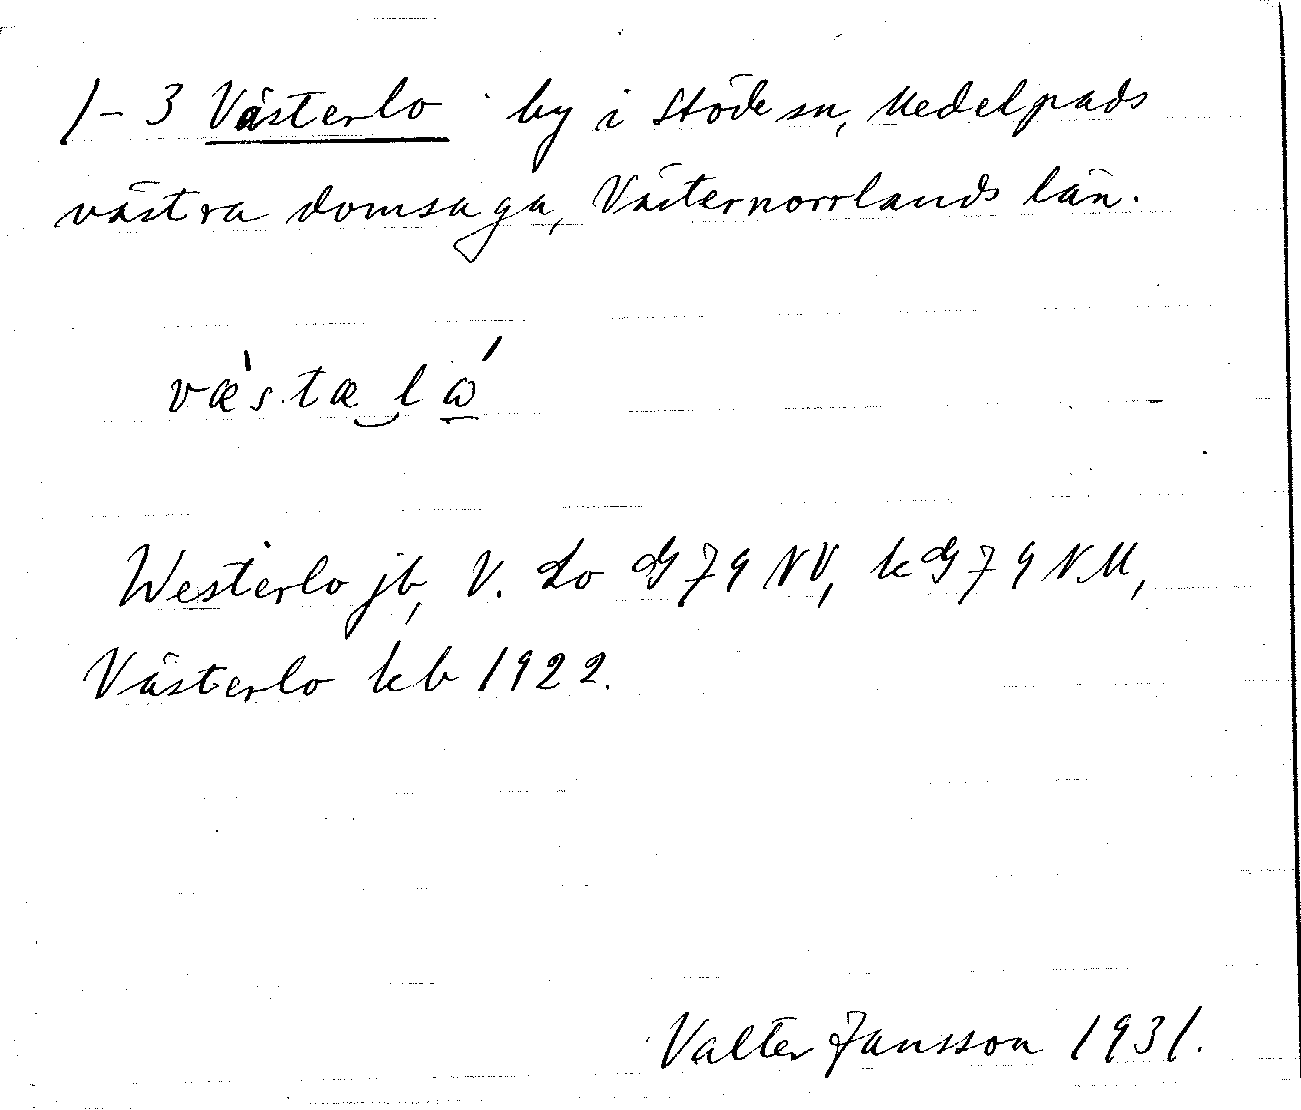 1-3 Västerlo by i Stöde sn, Medelpads
västra domsaga, Västernorrlands län.
væ̀stæ‿lώ̲
Westerlo jb, V. Lo G 79 NV, kG 79 NM,
Västerlo kb 1922.
Valter Jansson 1931.